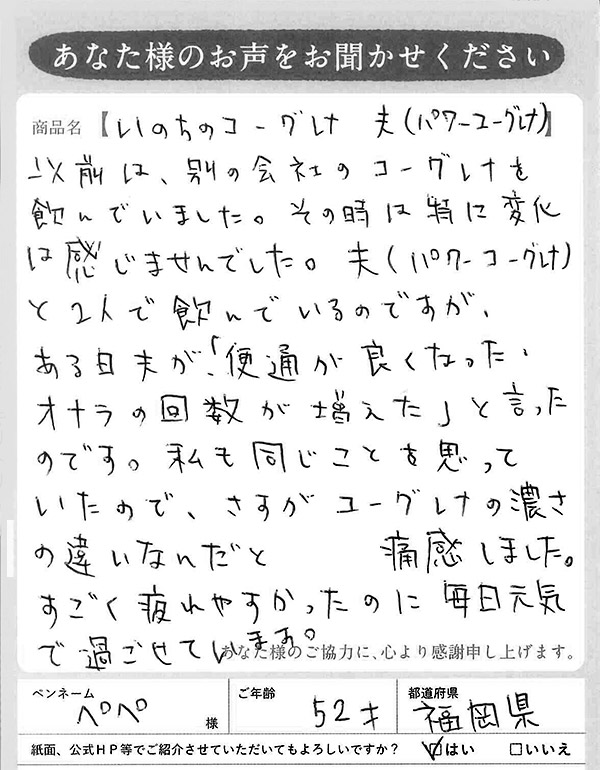 あなた様のお声をお聞かせください
商品名【いのちのユーグレナ 夫(パワーユーグレナ)】
以前は、別の会社のユーグレナを
飲んでいました。その時は特に変化
は感じませんでした。夫(パワーユーグレナ)
と2人で飲んでいるのですが、
ある日夫が、「便通が良くなった、
オナラの回数が増えた」と言った
のです。私も同じことを思って
いたので、さすがユーグレナの濃さ
の違いなんだと 痛感しました。
すごく疲れやすかったのに毎日元気
で過ごせています。
あなた様のご協力に、心より感謝申し上げます。
ペンネーム ペペ 様 ご年齢 52才 都道府県 福岡県
紙面、公式HP等でご紹介させていただいてもよろしいですか? ☑はい □いいえ